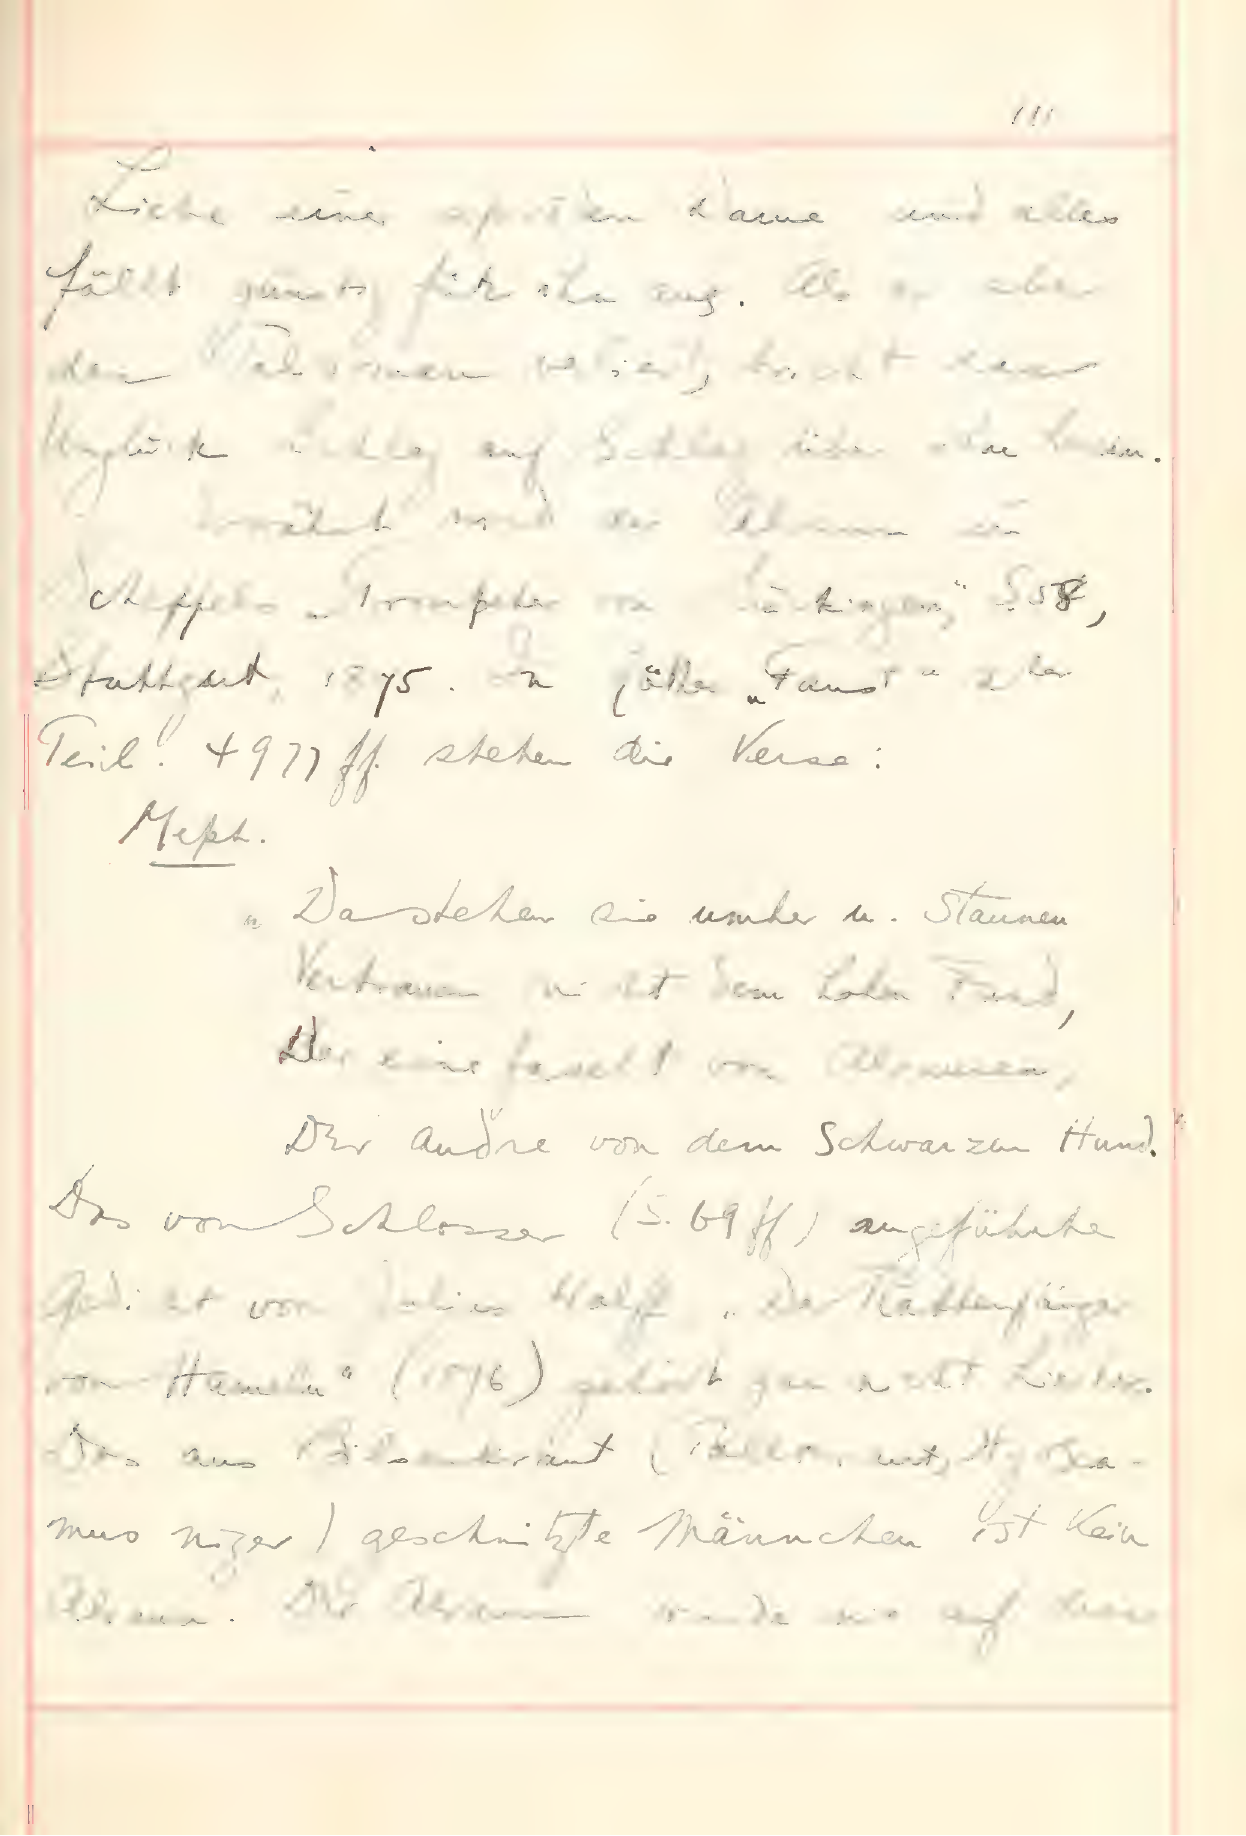 111
Liebe einer spröden Dame und alles
fällt günstig für ihn aus. Als er aber
den Talisman verliert, bricht das
Unglück Schlag auf Schlag über ihn herein.
Erwähnt wird der Alraun in
Scheffels „Trompeter von Säckingen“,
Stuttgart, 1875. In „Faust“ 2ter
Teil. 4977 ff. stehen die Verse:
Meph.
„Da stehen sie umher u. Staunen
Vertrauen nicht dem hohen Fund,
Der eine faselt von Alraunen,
Der Andre von dem Schwarzen Hund.“
Das von Schlosser (S. 69 ff) angeführte
Gedicht von Julius Wolff „Der Rattenfänger
von Hameln“ (1876) gehört gar nicht hierher.
Das aus Bilsenkraut (Hyoscya-
mus niger) geschnitzte Männchen ist kein
Alraun. Der Alraun wurde nie auf